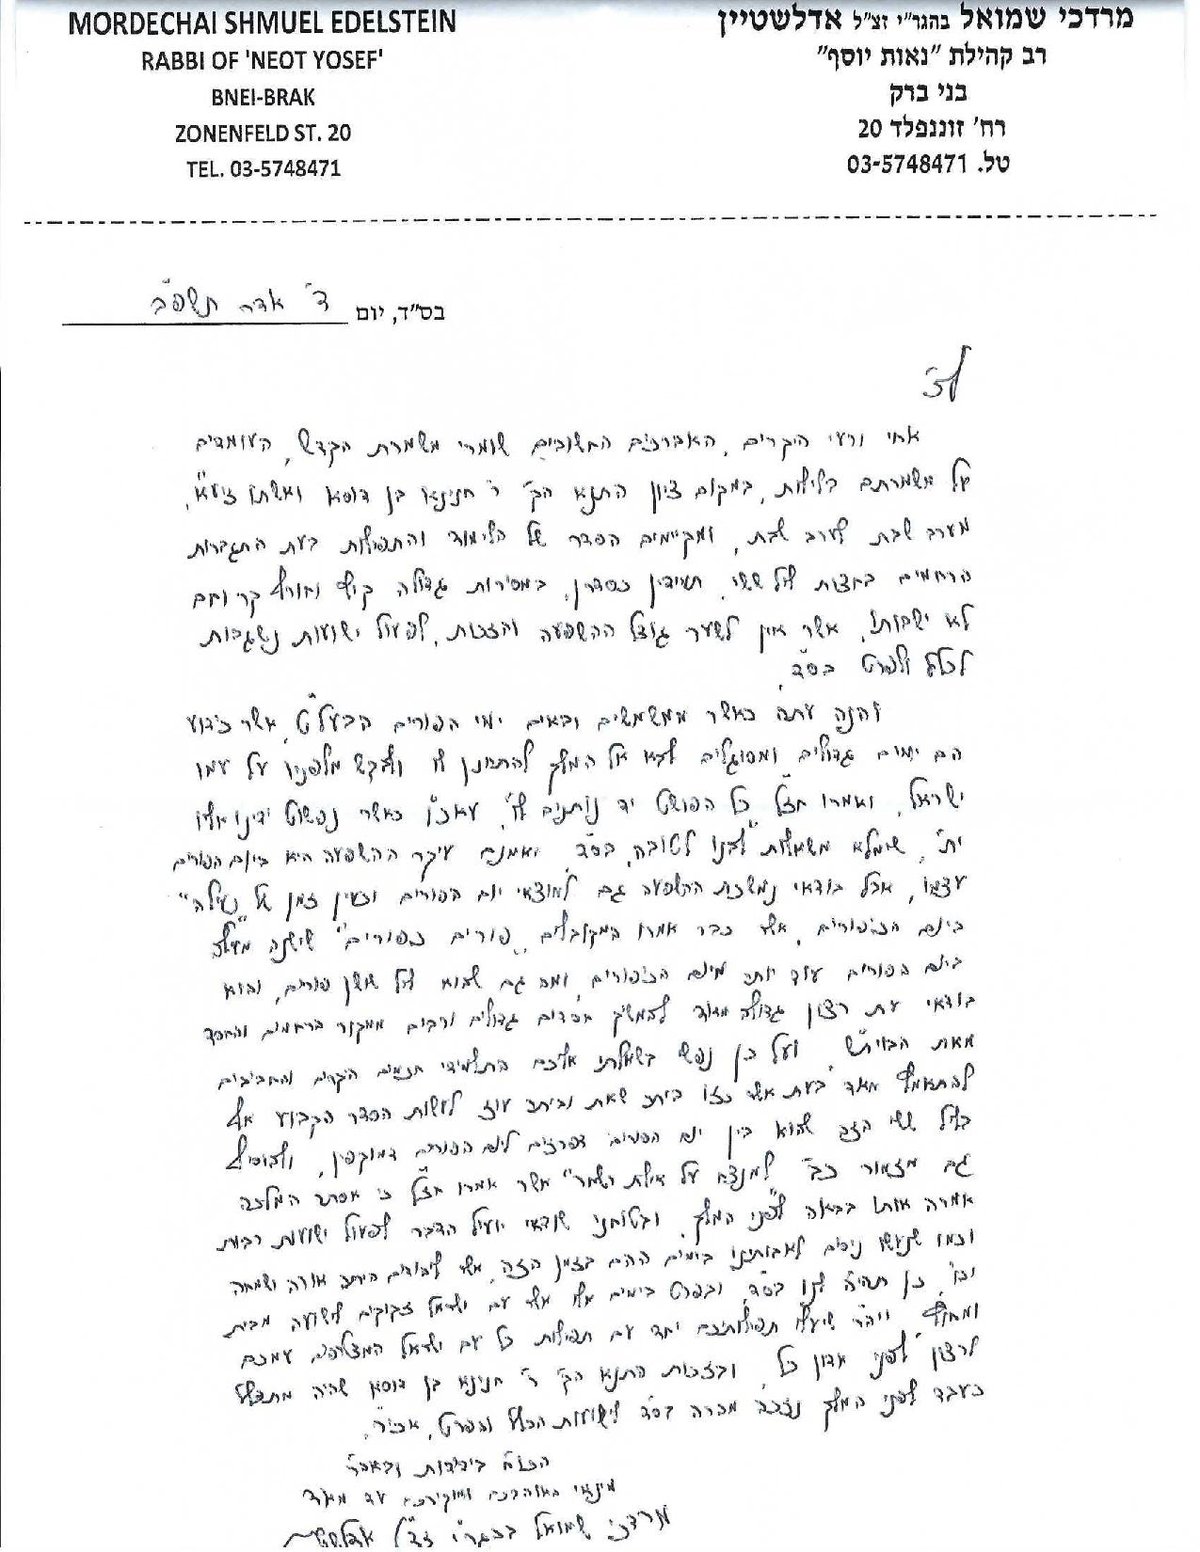 MORDECHAI SHMUEL EDELSTEIN
RABBI OF 'NEOT YOSEF'
BNEI-BRAK
ZONENFELD ST. 20
TEL. 03-5748471
מרדכי שמואל בהגר"י זצ"ל אדלשטיין
רב קהילת "נאות יוסף"
בני ברק
רח' זוננפלד 20
טל. 03-5748471
בס"ד, יום ד' אדר תשפ"ב
לכ'
אחי ורעי היקרים, האברכים החשובים שומרי משמרת הקדש, העומדים
על משמרתם בלילות, במקום ציון התנא הק' ר' חנינא בן דוסא ואשתו זיע"א,
מערב שבת לערב שבת, ומקיימים הסדר של הלימוד והתפילות בעת התגברות
הרחמים בחצות ליל ששי, תמידין כסדרן, במסירות גדולה קיץ וחורף קר וחם
לא ישבותו, אשר אין לשער גודל ההשפעה והזכות, לפעול ישועות נשגבות
לכלל ולפרט בס"ד.
והנה עתה כאשר ממשמשים ובאים ימי הפורים הבעל"ט, אשר כידוע
הם ימים גדולים ומסוגלים לבא אל המלך להתחנן לו ולבקש מלפניו על עמו
ישראל, ואמרו חז"ל כל הפושט יד נותנים לו, עאכ"ו כאשר נפשוט ידינו אליו
ית', שימלא משאלות לבנו לטובה, בס"ד. ואמנם עיקר ההשפעה היא ביום הפורים
עצמו, אבל בודאי נמשכת ההשפעה גם למוצאי יום הפורים וכעין זמן של נעילה"
ביום הכיפורים, אשר כבר אמרו המקובלים, פורים כפורים" שישנה מעלה
ביום הפורים עוד יותר מיום הכיפורים, ומה גם שהוא ליל שושן פורים, והוא
בודאי עת רצון גדולה מאוד להמשיך חסדים גדולים ורבים ממקור הרחמים והחסד
מאת הבוי"ת ועל כן נפשי בשאלתי אליכם התלמידי חכמים היקרים והחביבים
להתאמץ מאד בעת אשר כזו ביתר שאת וביתר עוז לעשות הסדר הקבוע אף
בליל ששי הזה שהוא בין יום הפורים דפרזים ליום הפורים דמוקפין, ולהוסיף
גם מזמור כב' למנצח על אילת השחר" אשר אמרו חז"ל כי אסתר המלכה
אמרה אותו בבואה לפני המלך, ובטוחני שודאי יועיל הדבר לפעול ישועות רבות
וכמו שנעשו ניסים לאבותינו בימים ההם בזמן הזה, אשר ליהודים היתה אורה ושמחה
וכו', כן תהיה לנו בס"ד, ובפרט בימים אלו אשר עם ישראל זקוקים לישועה מבית
ומחוץ ויה"ר שיעלו תפילותיכם יחד עם תפילות כל עם ישראל המצטרפים עמכם
לרצון לפני אדון כל, ובזכות התנא הק' ר' חנינא בן דוסא שהיה מתפלל
כעבד לפני המלך נזכה מהרה בס"ד לישועות הכלל והפרט, אכי"ר,
הכו"ח בידידות ובאהבה
מינאי האוהבכם ומוקירכם עד מאד
מרדכי שמואל בהגר"י זצ"ל אדלשטיין